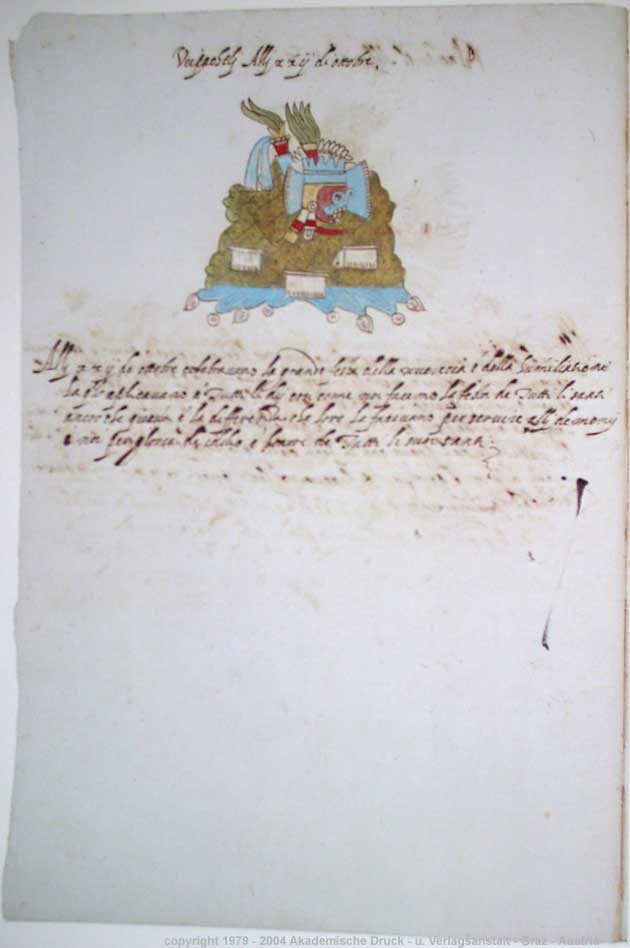 Alli xxij di ottobre.
Alli xxij de ottobre celebravano la grande festa della et della humiliatione
la applicavano a Tutti li dij come noi facemo la festa de Tutti li santi
ancor che questa e la differentia che loro la facevano per servire alli demonij
e noi per gloria di e honore de Tutti li suoi santi
copyright 1979 - 2004 Akademische Druck - u. Verlagsanstalt - Graz - Austria